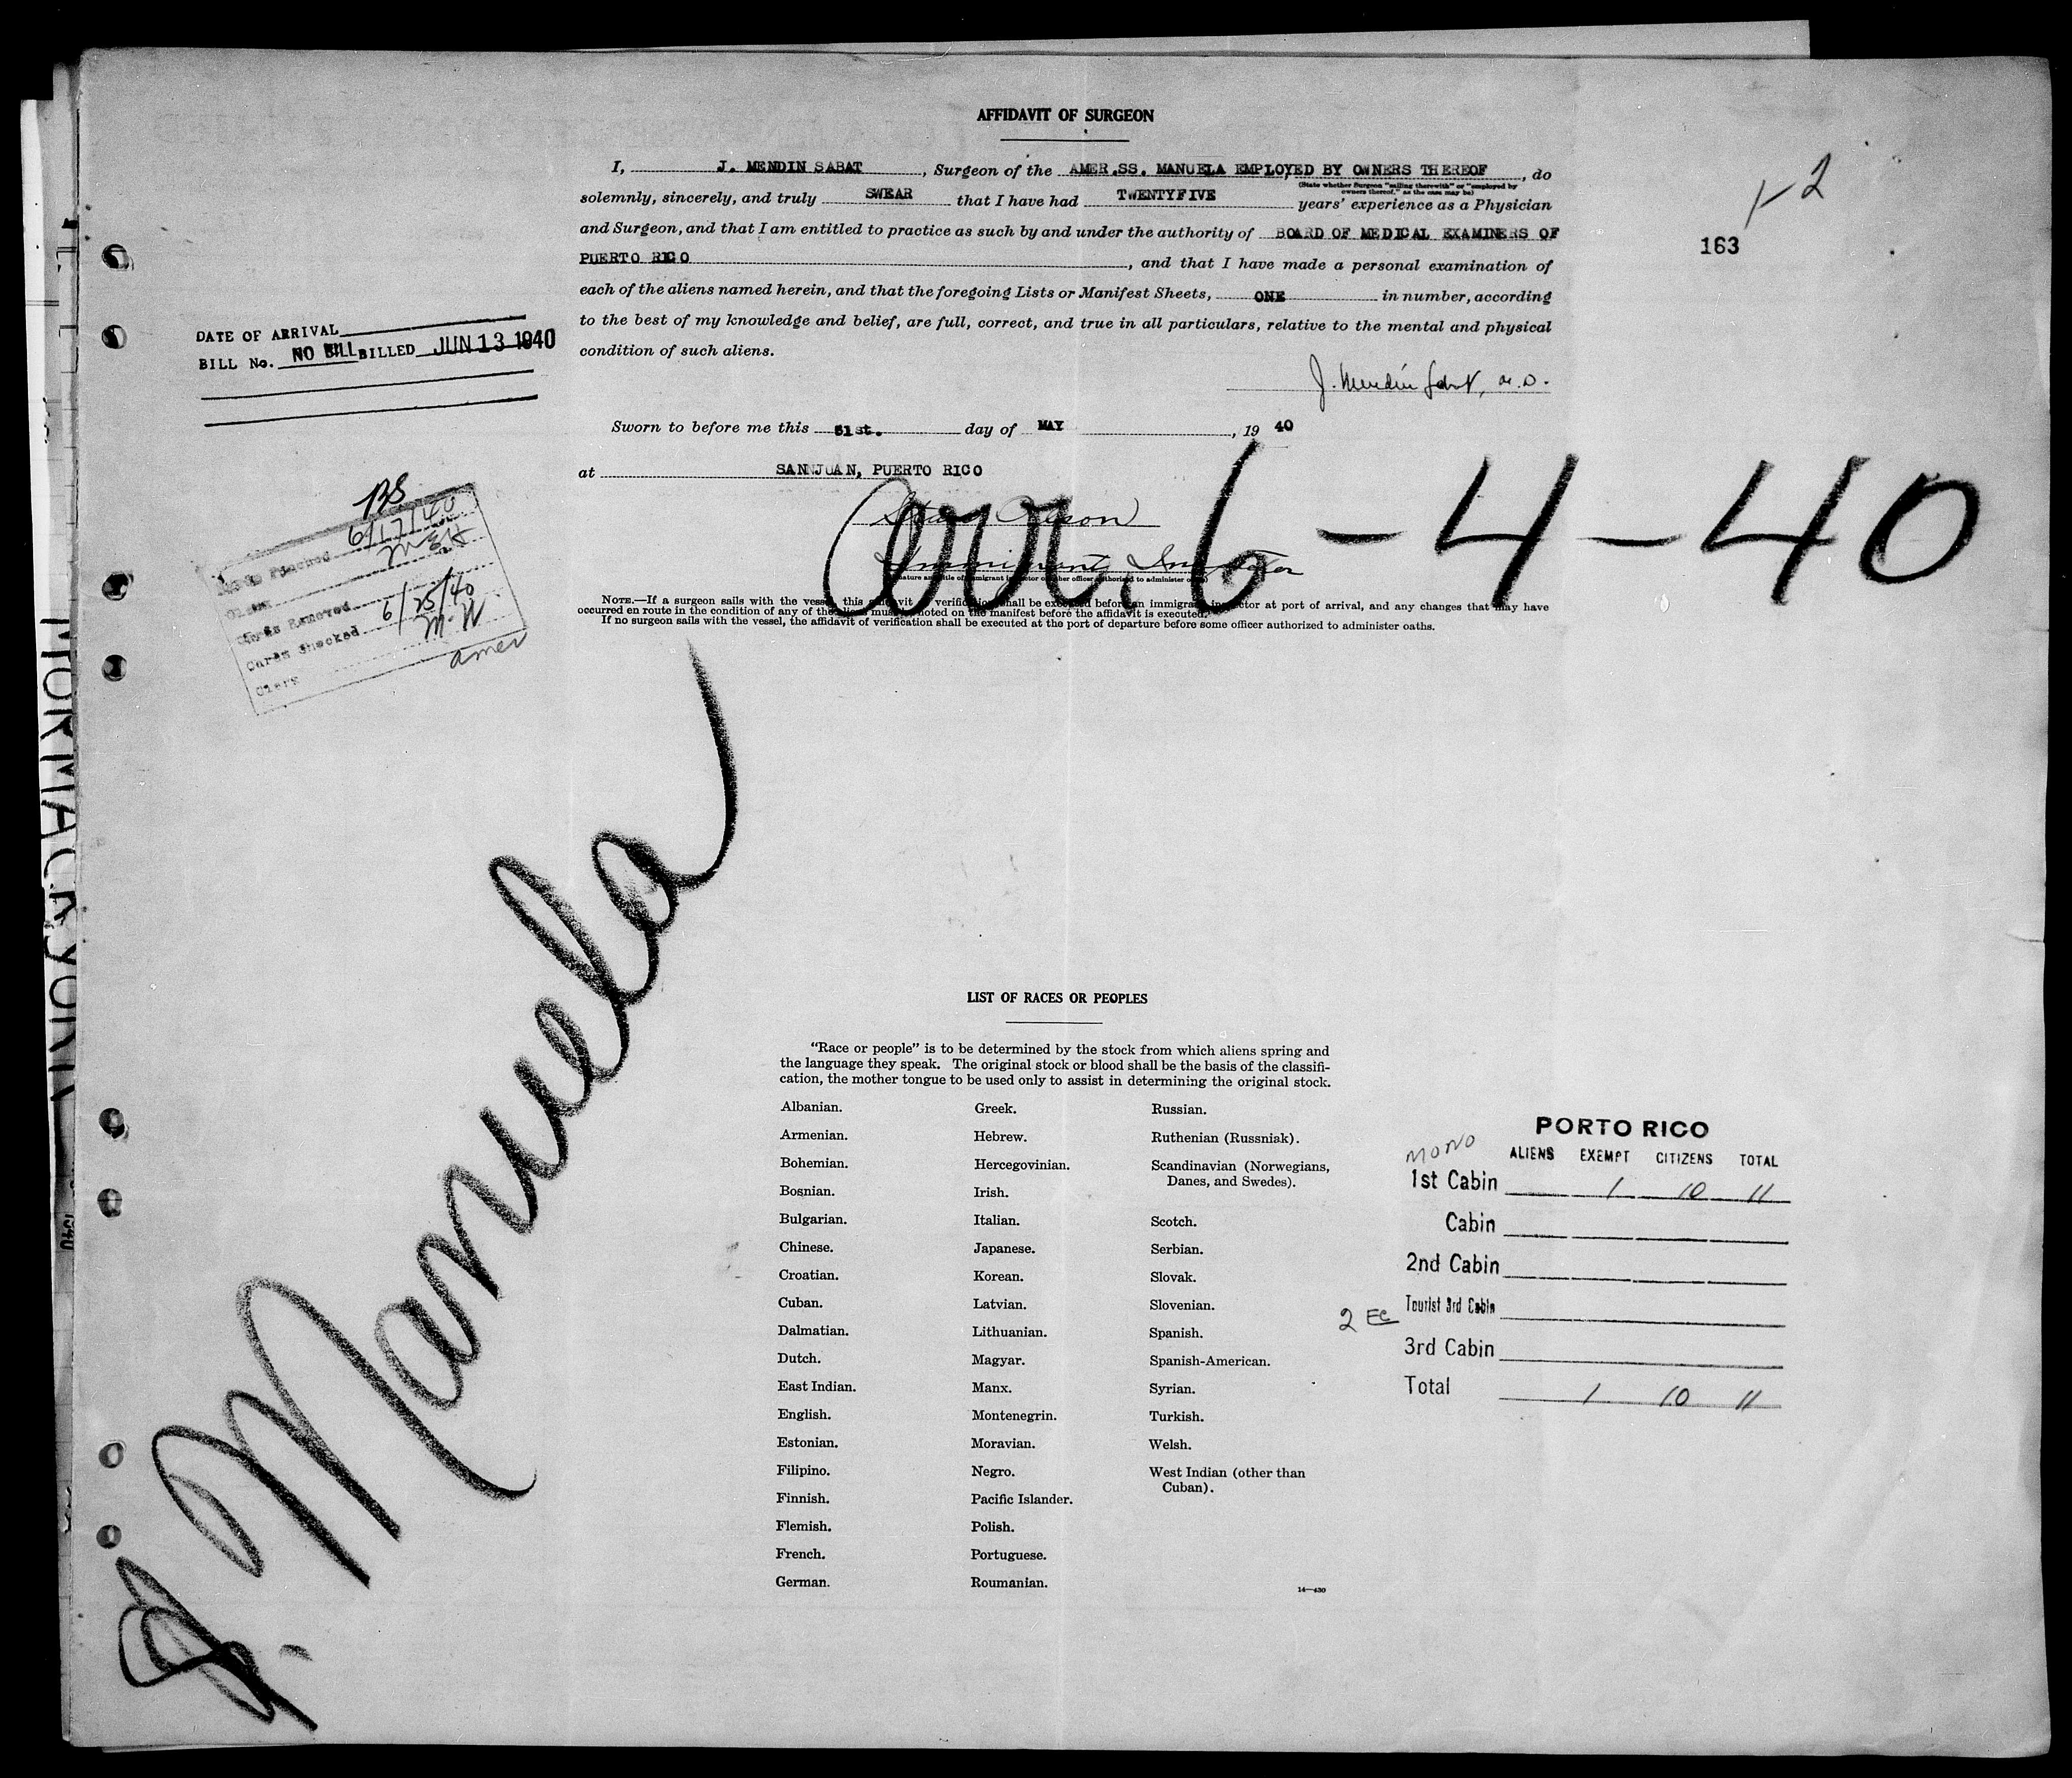 AFFIDAVIT OF SURGEON
I, J. MENDIN SABAT, Surgeon of the AMER.SS. MANUELA EMPLOYED BY OWNERS THEREOF, do
(State whether Surgeon "sailing therewith" or "employed by
owners thereof," as the case may be)
solemnly, sincerely, and truly SWEAR that I have had TWENTYFIVE years' experience as a Physician
and Surgeon, and that I am entitled to practice as such by and under the authority of BOARD OF MEDICAL EXAMINERS OF
PUERTO RICO, and that I have made a personal examination of
each of the aliens named herein, and that the foregoing Lists or Manifest Sheets, ONE in number, according
to the best of my knowledge and belief, are full, correct, and true in all particulars, relative to the mental and physical
condition of such aliens.
J. Mendin Sabat, M.D.
Sworn to before me this 31st. day of MAY, 19 40
at SAN JUAN, PUERTO RICO
Immigrant Inspector
(Signature and title of immigrant inspector or other officer authorized to administer oaths)
NOTE.—If a surgeon sails with the vessel, this affidavit of verification shall be executed before an immigrant inspector at port of arrival, and any changes that may have
occurred en route in the condition of any of the aliens must be noted on the manifest before the affidavit is executed.
If no surgeon sails with the vessel, the affidavit of verification shall be executed at the port of departure before some officer authorized to administer oaths.
arr. 6-4-40
1-2
163
DATE OF ARRIVAL
BILL No. NO BILL BILLED JUN 13 1940
BS
Cards Punched 6/17/40
Clerk MEK
Cards Removed
Cards Checked 6/25/40
Clerk M.W
amer
S. Manuela
MORMACRYORK
1940
LIST OF RACES OR PEOPLES
"Race or people" is to be determined by the stock from which aliens spring and
the language they speak. The original stock or blood shall be the basis of the classifi-
cation, the mother tongue to be used only to assist in determining the original stock.
Albanian.
Armenian.
Bohemian.
Bosnian.
Bulgarian.
Chinese.
Croatian.
Cuban.
Dalmatian.
Dutch.
East Indian.
English.
Estonian.
Filipino.
Finnish.
Flemish.
French.
German.
Greek.
Hebrew.
Hercegovinian.
Irish.
Italian.
Japanese.
Korean.
Latvian.
Lithuanian.
Magyar.
Manx.
Montenegrin.
Moravian.
Negro.
Pacific Islander.
Polish.
Portuguese.
Roumanian.
Russian.
Ruthenian (Russniak).
Scandinavian (Norwegians,
Danes, and Swedes).
Scotch.
Serbian.
Slovak.
Slovenian.
Spanish.
Spanish-American.
Syrian.
Turkish.
Welsh.
West Indian (other than
Cuban).
14—430
PORTO RICO
MONO
ALIENS EXEMPT CITIZENS TOTAL
1st Cabin 1 10 11
Cabin
2nd Cabin
2 EC Tourist 3rd Cabin
3rd Cabin
Total 1 10 11